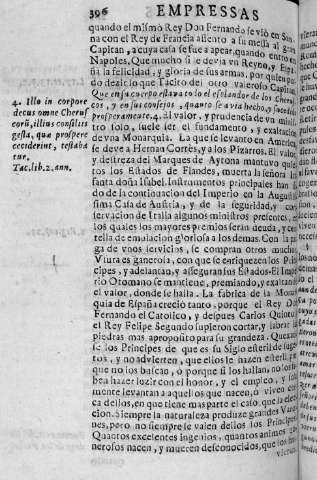 396 EMPRESSAS
quando el mismo Rey Don Fernando se viò en
na con el Rey de Francia assento a su messa al gran
Capitan, a cuya casa se fue a apear, quando entro en
Napoles, Que mucho si le devia un Reyno, y Espa-
ña la felicidad, y gloria de sus armas, por quien
do dezir lo que Tacito del otro valeroso Capitan,
Que en su cuerpo estava todo el esplandor de los Cherus-
cos, y en sus consejos, quanto se avia hecho, y sucedido
prosperamente. 4. El valor, y prudencia de un minis-
tro solo, suele ser el fundamento, y exaltacion
de una Monarquia. La que se levantò en America,
se deve a Hernan Cortès, y a los Pizarros. El valor,
y destreza del Marques de Aytona mantuvo
tos los Estados de Flandes, muerta la señora In-
fanta doña Isabel. Instrumentos principales han
do de la continuacion del Imperio en la Augustis-
sima Casa de Austria, y de la seguridad, y con-
servacion de Italia algunos ministros presentes, en
los quales los mayores premios serán deuda, y cen-
tella de emulacion gloriosa a los demas. Con la pa-
ga de unos servicios, se compran otros muchos.
Usura es generosa, con que se enriquezen los Prin-
cipes, y adelantan, y asseguran sus Estados. El Impe-
rio Otomano se mantiene, premiando, y exaltando
el valor, donde se halla. La fabrica de la Monar-
quia de España creciò tanto, porque el Rey Don
Fernando el Catolico, y despues Carlos Quinto,
el Rey Felipe Segundo supieron cortar, y labrar las
piedras mas aproposito para su grandeza. Quexan-
se los Principes de que es su Siglo esteril de suge-
tos, y no advierten, que ellos le hazen esteril, por-
que no los buscan, ò porque si los hallan, no los sa-
ben hazer luzir con el honor, y el empleo, y
mente levantan a aquellos que nacen, ò viven cer-
ca dellos, en que tiene mas parte el caso, que la elec-
cion. Siempre la naturaleza produze grandes Varo-
nes, pero no siempre se valen dellos los Principes.
Quantos excelentes ingenios, quantos animos ge-
nerosos nacen, y mueren desconocidos, que
4. Illo in corpore
decus omne Cherus-
corũ, illius consiliis
gesta, quæ prospere
ceciderint, testaba
tur.
Tac. lib. 2. ann.